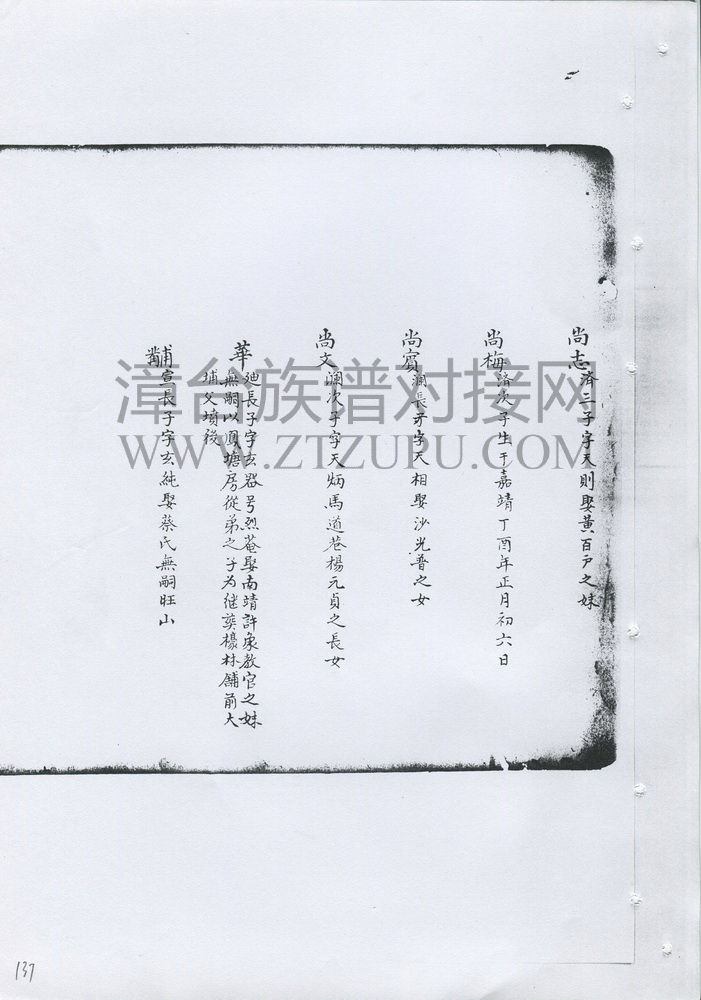 尚志 済三子字天則娶黃百戶之妹
尚梅 済次子生于嘉靖丁酉年正月初六日
尚賓 瀾長子字天相娶沙光普之女
尚文 瀾次子字天炳馬道巷楊元貞之長女
華 廸長子字玄器号烈菴娶南靖許象教官之妹
無嗣以鳳塘房從弟之子为継葬檺林舖前大
埔父墳後
黼 宣長子字玄純娶蔡氏無嗣旺山
漳台族谱对接网
WWW.ZTZUPU.COM
137